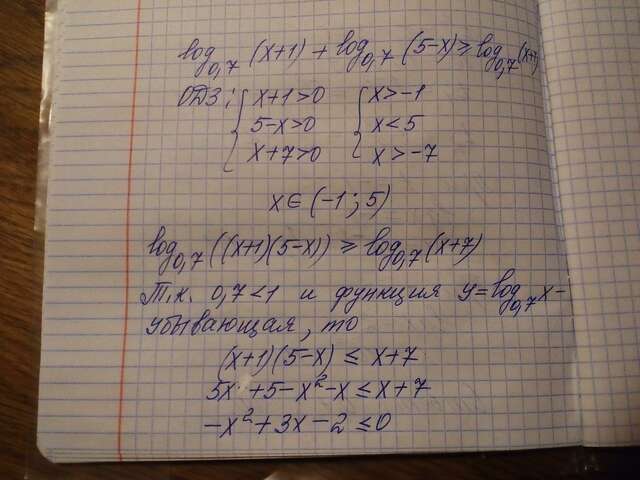 log₀,₇ (x+1) + log₀,₇ (5-x) ≥ log₀,₇ (x+7)
ОДЗ: { x+1>0 { x>-1
5-x>0 x<5
x+7>0 x>-7
x∈(-1; 5)
log₀,₇((x+1)(5-x)) ≥ log₀,₇(x+7)
Т.к. 0,7<1 и функция y=log₀,₇x-
убывающая, то
(x+1)(5-x) ≤ x+7
5x+5-x²-x ≤ x+7
-x²+3x-2 ≤ 0